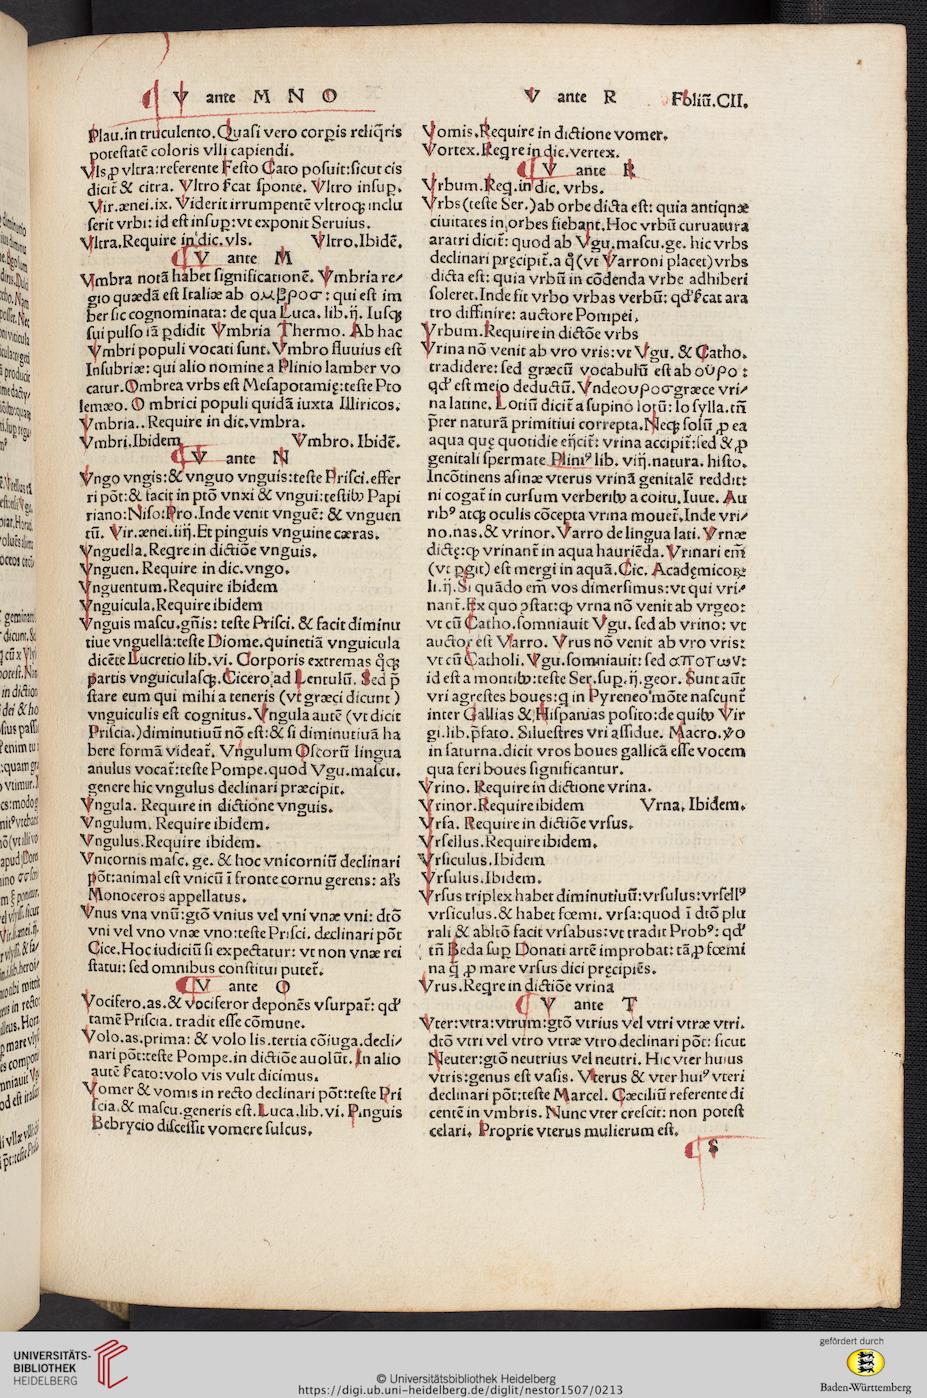 V ante M N O
Plau.in truculento.Quasi vero corꝑis reliq̃ris
potestatẽ coloris vlli capiendi.
Vls ꝓ vltra:referente Festo Cato posuit:sicut cis
dicit̃ & citra. Vltro ſcat sponte. Vltro insuꝑ.
Vir.ænei.ix. Viderit irrumpentẽ vltroqꝫ inclu
serit vrbi: id est insuꝑ:vt exponit Seruius.
Vltra.Require in dic.vls. Vltro.Ibidẽ.
V ante M
Vmbra notã habet significationẽ. Vmbria re/
gio quædã est Italiæ ab ομβροσ: qui est im
ber sic cognominata: de qua Luca. lib.ij. Iusqꝫ
sui pulso iã ꝑdidit Vmbria Thermo. Ab hac
Vmbri populi vocati sunt. Vmbro fluuius est
Insubriæ: qui alio nomine a Plinio lamber vo
catur.Ombrea vrbs est Mesapotamię:teste Pto
lemæo. Ombrici populi quidã iuxta Illiricos.
Vmbria..Require in dic.vmbra.
Vmbri.Ibidem Vmbro. Ibidẽ.
V ante N
Vngo vngis:& vnguo vnguis:teste Prisci.effer
ri põt:& facit in ptõ vnxi & vngui:testibꝰ Papi
riano:Niso:Pro.Inde venit vnguẽ: & vnguen
tũ. Vir.ænei.iiij.Et pinguis vnguine cæras.
Vnguella.Reqre in dictiõe vnguis.
Vnguen. Require in dic.vngo.
Vnguentum.Require ibidem
Vnguicula.Require ibidem
Vnguis mascu.gñis: teste Prisci. & facit diminu
tiue vnguella:teste Diome.quinetiã vnguicula
dicẽte Lucretio lib.vi. Corporis extremas q̃qꝫ
partis vnguiculasqꝫ.Cicero ad Lentulũ. Sed p̃
stare eum qui mihi a teneris (vt græci dicunt)
vnguiculis est cognitus. Vngula autẽ (vt dicit
Priscia.)diminutiuũ nõ est:& si diminutiuã ha
bere formã videat̃. Vngulum Oscorũ lingua
anulus vocat̃:teste Pompe.quod Vgu.mascu.
genere hic vngulus declinari præcipit.
Vngula. Require in dictione vnguis.
Vngulum. Require ibidem.
Vngulus.Require ibidem.
Vnicornis masc. ge. & hoc vnicorniũ declinari
põt:animal est vnicũ ĩ fronte cornu gerens: al's
Monoceros appellatus.
Vnus vna vnũ:gtõ vnius vel vni vnæ vni: dtõ
vni vel vno vnæ vno:teste Prisci. declinari põt
Cice.Hoc iudiciũ si expectatur: vt non vnæ rei
statui: sed omnibus constitui putet̃.
V ante O
Vocifero.as.& vociferor deponẽs vsurpat̃: qd'
tamẽ Priscia. tradit esse cõmune.
Volo.as.prima: & volo lis.tertia cõiuga.decli/
nari põt:teste Pompe.in dictiõe auolũt. In alio
autẽ ſcato:volo vis vult dicimus.
Vomer & vomis in recto declinari põt:teste Pri
scia.& mascu.generis est.Luca.lib.vi. Pinguis
Bebrycio discessit vomere sulcus.
V ante R Foliũ.CII.
Vomis.Require in dictione vomer.
Vortex.Reqre in dic.vertex.
V ante R
Vrbum.Req.in dic. vrbs.
Vrbs(teste Ser.)ab orbe dicta est: quia antiqnæ
ciuitates in orbes fiebant.Hoc vrbũ curuatura
aratri dicit̃: quod ab Vgu.mascu.ge. hic vrbs
declinari pręcipit̃.a q̃(vt Varroni placet)vrbs
dicta est: quia vrbũ in cõdenda vrbe adhiberi
soleret.Inde fit vrbo vrbas verbũ: qd' ſcat ara
tro diffinire: auctore Pompei.
Vrbum.Require in dictiõe vrbs
Vrina nõ venit ab vro vris:vt Vgu. & Catho.
tradidere: sed græcũ vocabulũ est ab ουρο:
qd' est meio deductũ. Vnde ουροσ græce vri/
na latine. Lotiũ dicit̃ a supino lotũ: lo sylla.tñ
p̃ter naturã primitiui correpta.Neqꝫ solũ ꝓ ea
aqua quę quotidie eijcit̃: vrina accipit̃:sed & ꝓ
genitali spermate Pliniꝰ lib. viij.natura. histo.
Incõtinens asinæ vterus vrinã genitalẽ reddit:
ni cogat̃ in cursum verberibꝰ a coitu. Iuue. Au
ribꝰ atqꝫ oculis cõcepta vrina mouet̃.Inde vri/
no.nas.& vrinor. Varro de lingua lati. Vrnæ
dictę:qꝫ vrinant̃ in aqua hauriẽda. Vrinari em̃
(vt ꝑgit) est mergi in aquã. Cic. Academicoꝝ
li.ij.Si quãdo em̃ vos dimersimus:vt qui vri/
nant̃.Ex quo ꝓstat:qꝫ vrna nõ venit ab vrgeo:
vt cũ Catho.somniauit Vgu. sed ab vrino: vt
auctor est Varro. Vrus nõ venit ab vro vris:
vt cũ Catholi. Vgu.somniauit: sed αποτωυ:
id est a montibꝰ:teste Ser.suꝑ.ij.geor. Sunt aũt
vri agrestes boues:q in Pyreneo mõte nascunt̃
inter Gallias & Hispanias posito:de quibꝰ Vir
gi.lib.p̃fato. Siluestres vri assidue. Macro.vo
in saturna.dicit vros boues gallicã esse vocem
qua feri boues significantur.
Vrino. Require in dictione vrina.
Vrinor.Require ibidem Vrna. Ibidem.
Vrsa. Require in dictiõe vrsus.
Vrsellus.Require ibidem.
Vrsiculus.Ibidem
Vrsulus.Ibidem.
Vrsus triplex habet diminutiuũ:vrsulus:vrsellꝰ
vrsiculus.& habet fœmi. vrsa:quod ĩ dtõ plu
rali & abltõ facit vrsabus:vt tradit Probꝰ: qd'
tñ Beda suꝑ Donati artẽ improbat: tã ꝓ fœmi
na q̃ ꝓ mare vrsus dici pręcipiẽs.
Vrus.Reqre in dictiõe vrina
V ante T
Vter:vtra:vtrum:gtõ vtrius vel vtri vtræ vtri.
dtõ vtri vel vtro vtræ vtro declinari põt: sicut
Neuter:gtõ neutrius vel neutri. Hic vter huius
vtris:genus est vasis. Vterus & vter huiꝰ vteri
declinari põt:teste Marcel. Cæciliũ referente di
centẽ in vmbris. Nunc vter crescit: non potest
celari. Proprie vterus mulierum est.
S
UNIVERSITÄTS-
BIBLIOTHEK
HEIDELBERG
© Universitätsbibliothek Heidelberg
https://digi.ub.uni-heidelberg.de/diglit/nestor1507/0213
gefördert durch
Baden-Württemberg